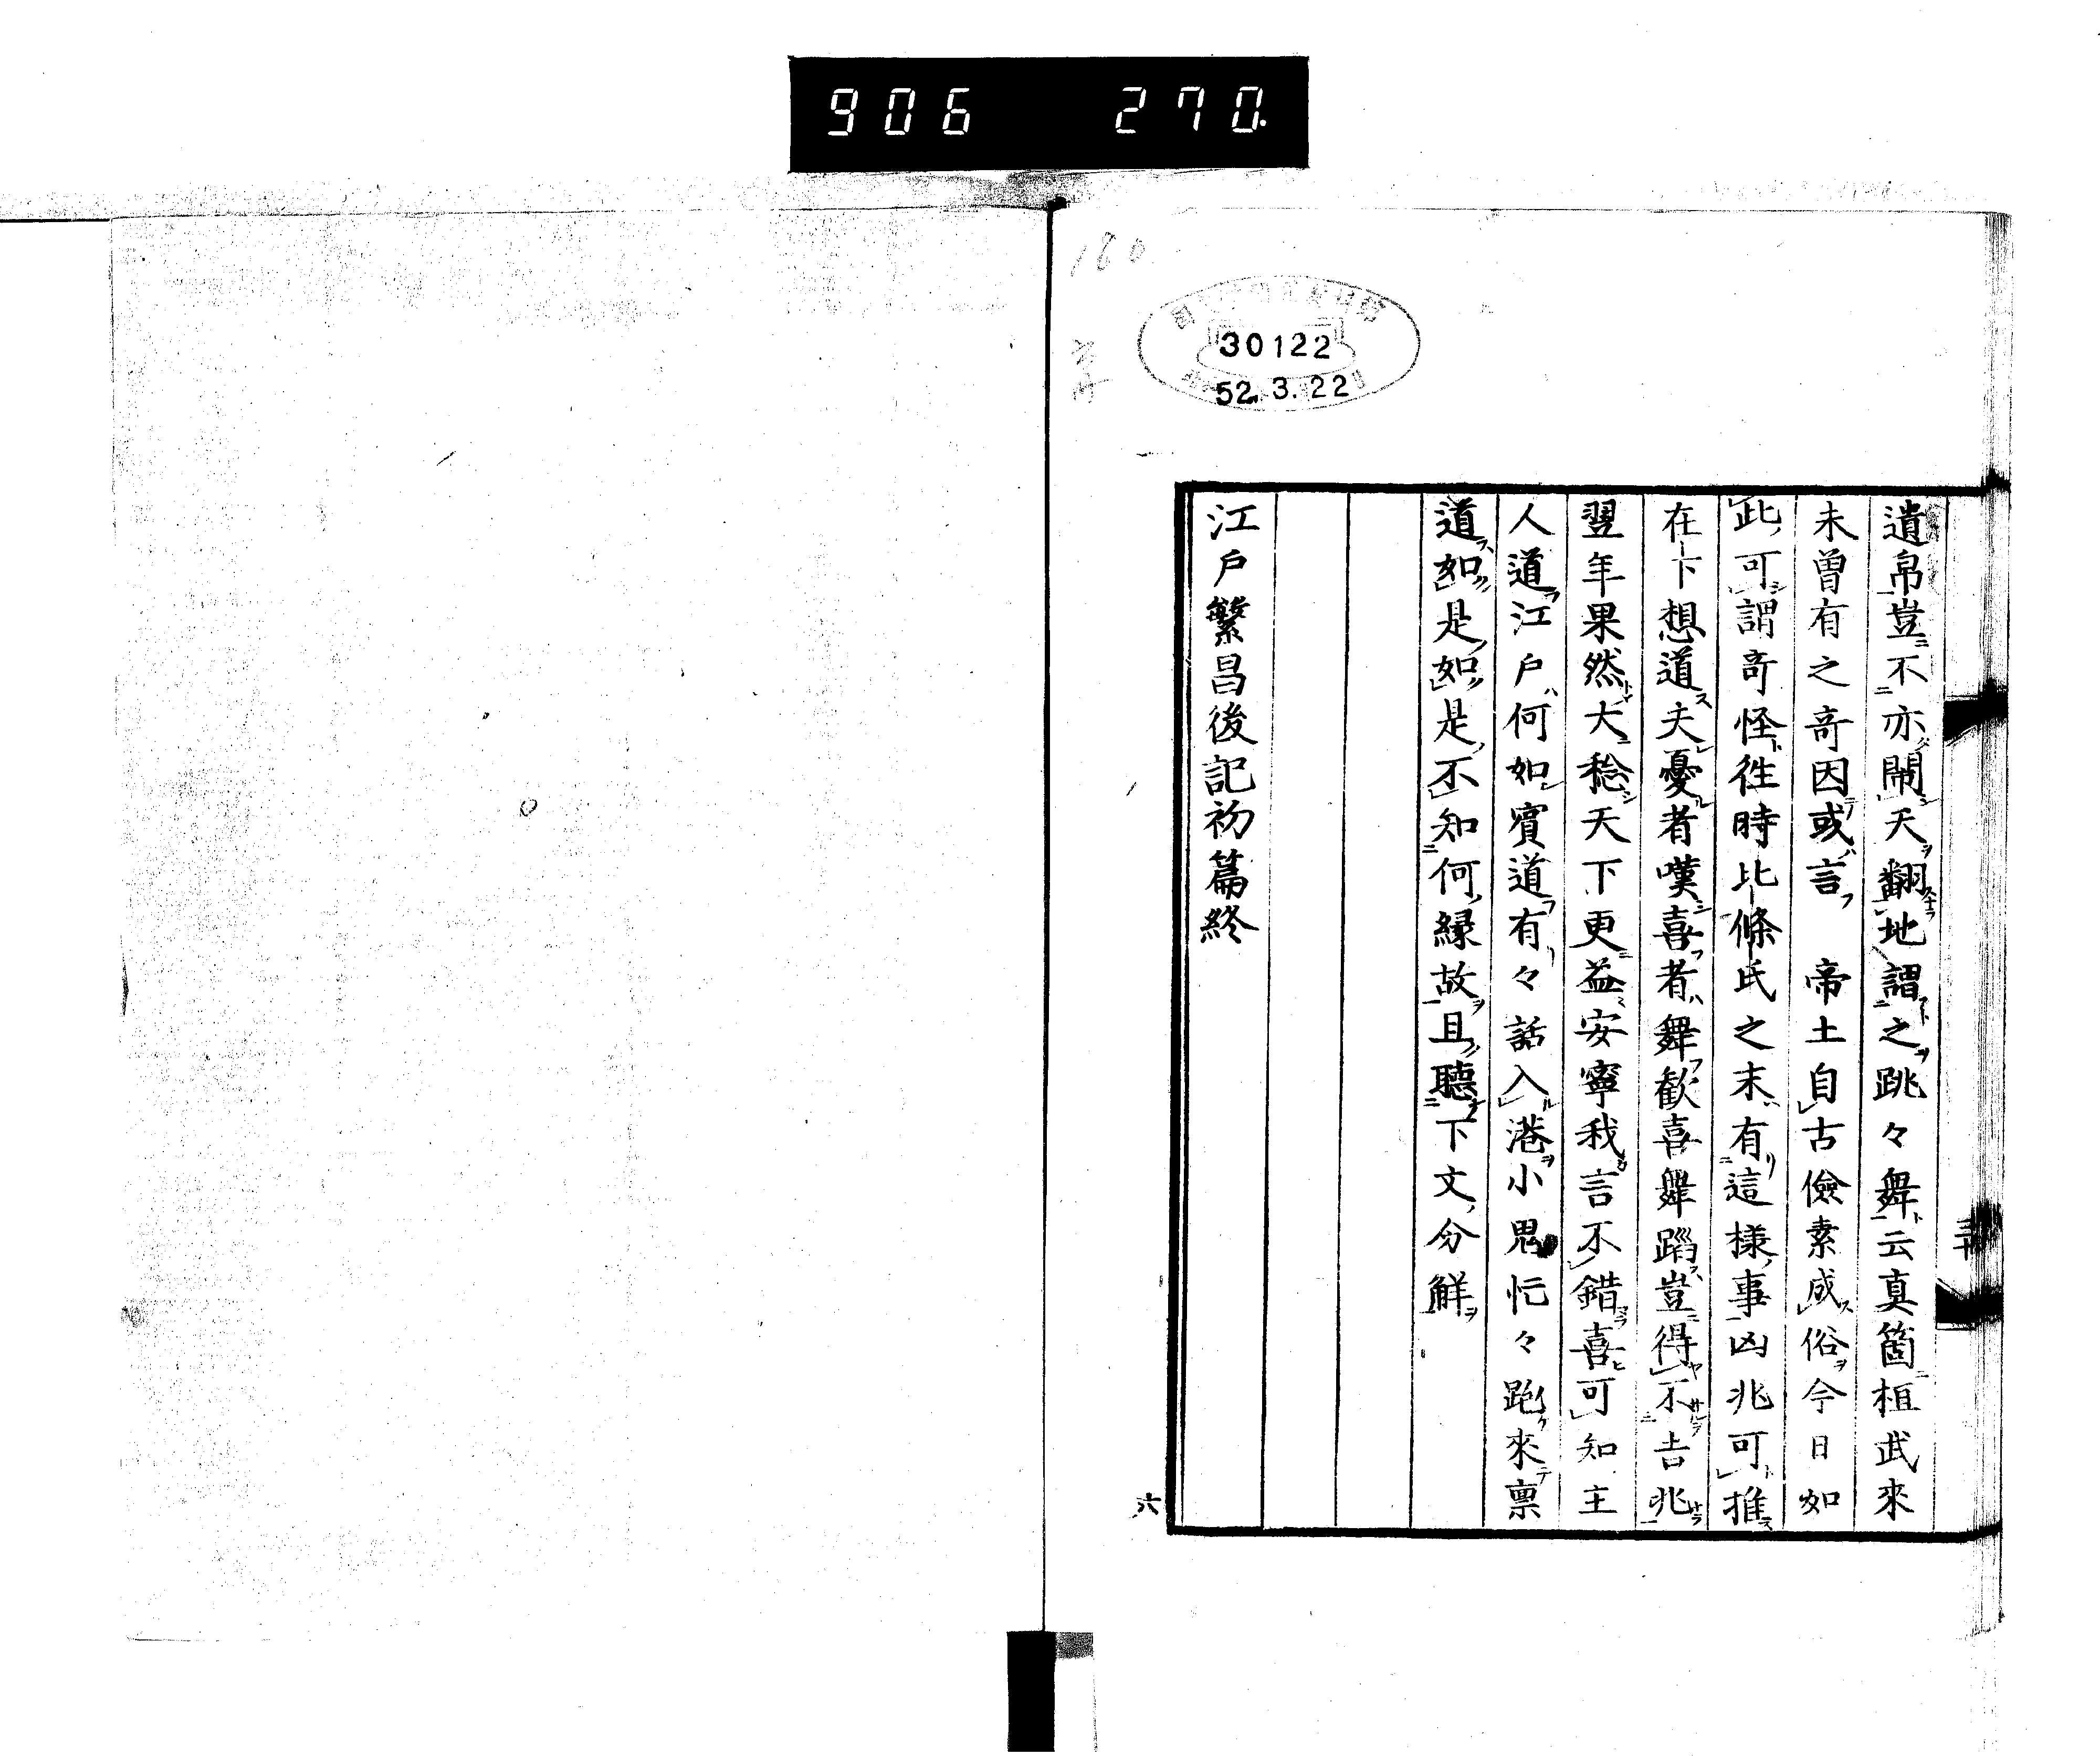 906 270.
180
30122
52.3.22
遺帛豈不亦鬧天翻地謂之跳々舞云真箇桓武來
未曽有之奇因或言　帝土自古儉素成俗今日如
此可謂奇怪徃時北條氏之末有這様事凶兆可推
在下想道夫憂者嘆喜者舞歓喜舞蹈豈得不吉兆
翌年果然大稔天下更益安寧我言不錯喜可知主
人道江戸何如賓道有々話入港小鬼忙々跑來禀
道如是如是不知何縁故且聽下文分解
江戸繁昌後記初篇終
三十
六